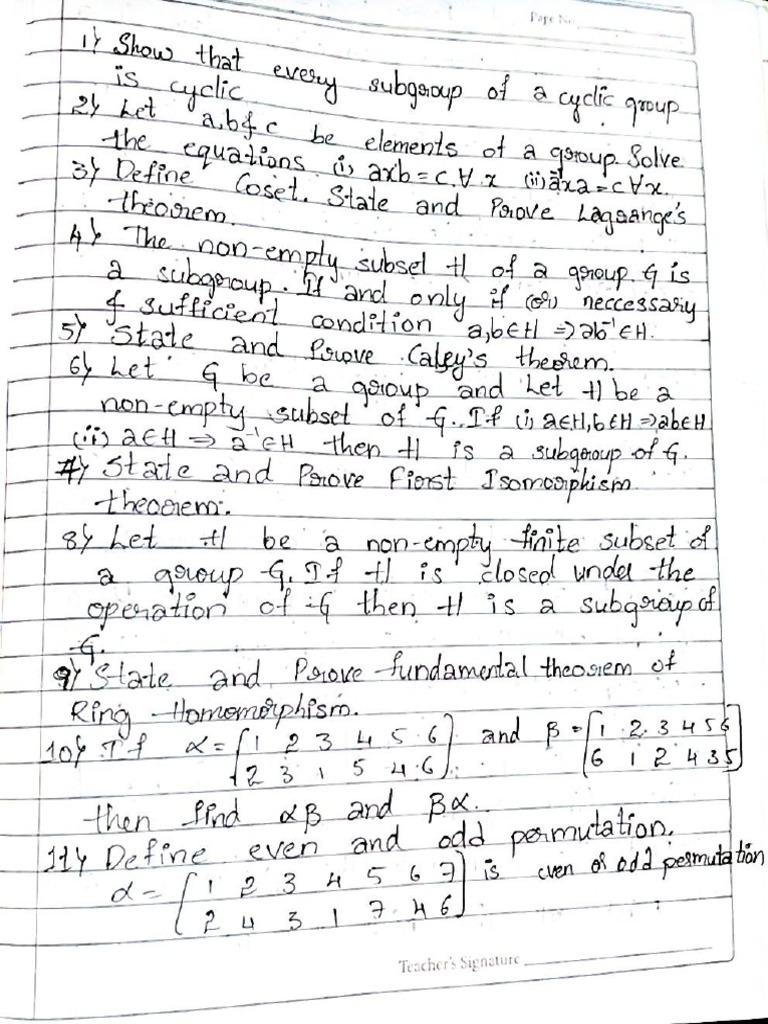 Page No.
1) Show that every subgroup of a cyclic group
is cyclic
2) Let a,b & c be elements of a group. Solve
the equations. (i) axb = c. ∀ x (ii) a⁻¹xa = c ∀ x.
3) Define Coset. State and Prove Lagrange's
theorem.
4) The non-empty subset H of a group G is
a subgroup. If and only if (or) neccessary
& sufficient condition a,b∈H ⇒ ab⁻¹∈H.
5) State and Prove Caley's theorem.
6) Let G be a group and Let H be a
non-empty subset of G. If (i) a∈H, b∈H ⇒ ab∈H
(ii) a∈H ⇒ a⁻¹∈H then H is a subgroup of G.
7) State and Prove First Isomorphism
theorem.
8) Let H be a non-empty finite subset of
a group G. If H is closed under the
operation of G then H is a subgroup of
G.
9) State and Prove fundamental theorem of
Ring Homomorphism.
10) If α = [1 2 3 4 5 6] and β = [1 2 3 4 5 6]
[2 3 1 5 4 6] [6 1 2 4 3 5]
then find αβ and βα.
11) Define even and odd permutation.
α = [1 2 3 4 5 6 7] is even or odd permutation
[2 4 3 1 7 4 6]
Teacher's Signature